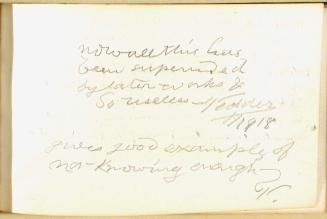 now all this has
been superseded
by later works &
so useless Vedder
1918
gives good example of
not-knowing enough
V.